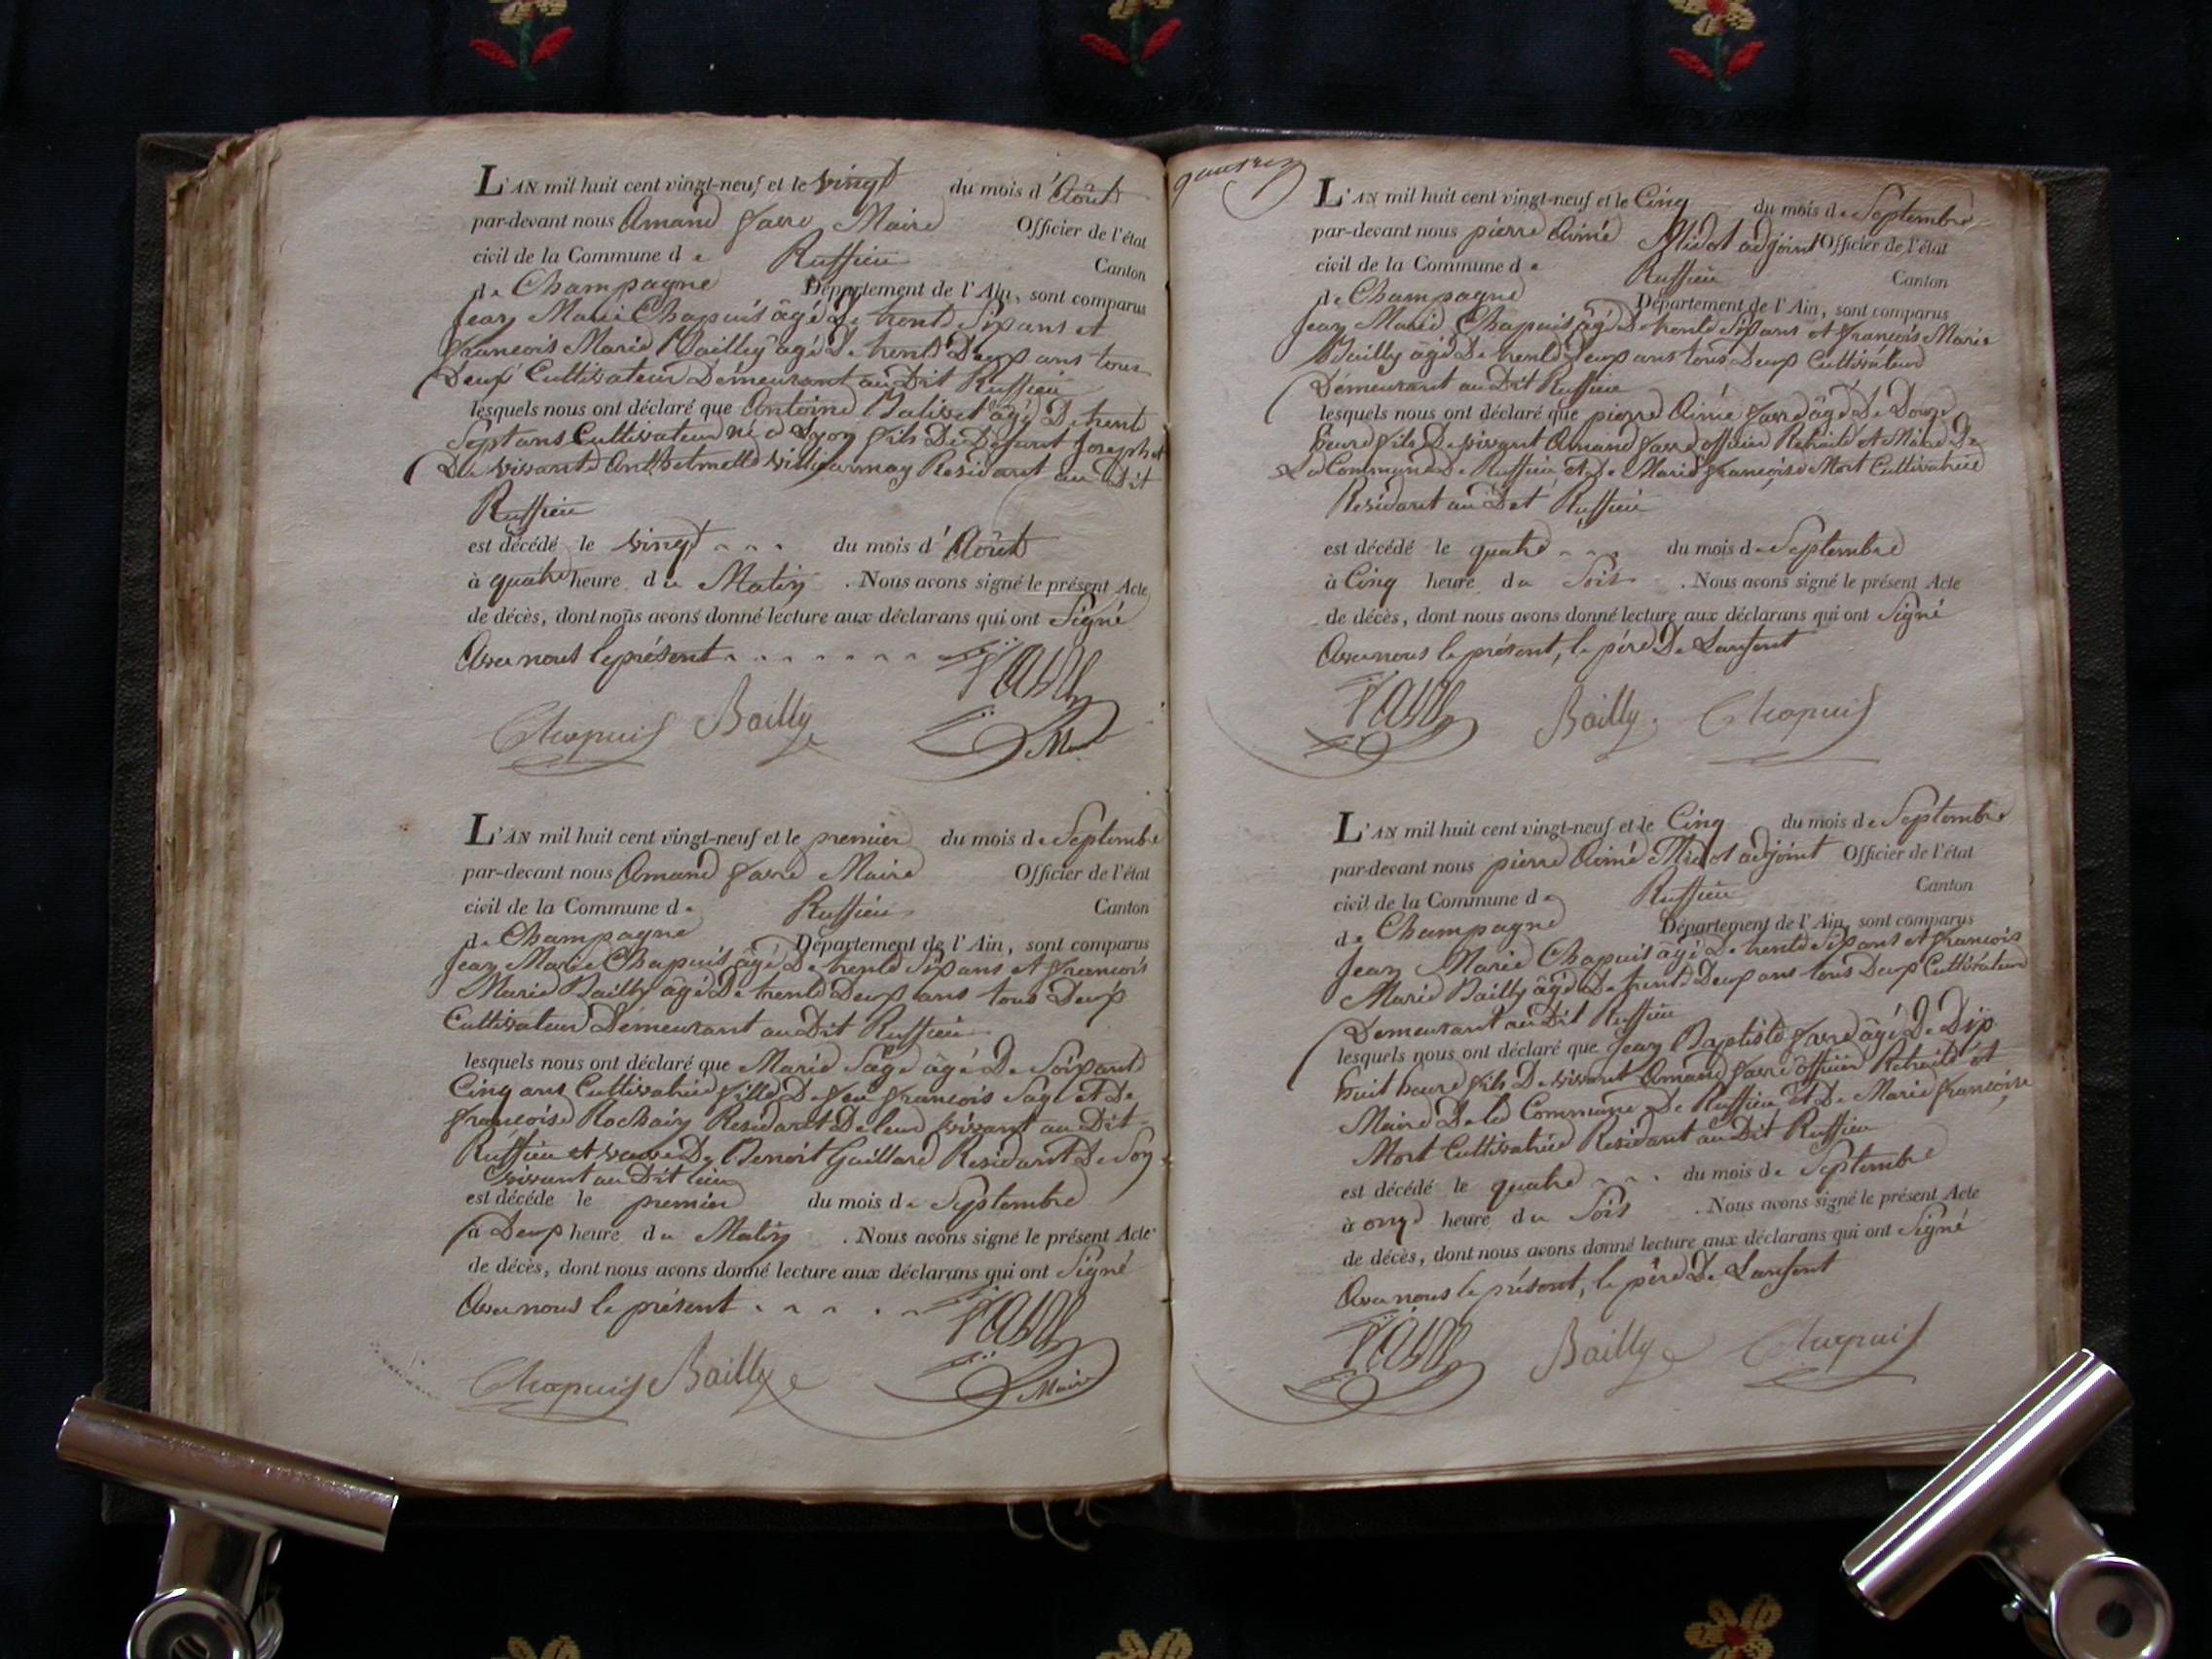 L'AN mil huit cent vingt-neuf et le vingt du mois d'Août
par-devant nous Amand favre Maire Officier de l'état
civil de la Commune de Ruffieu Canton
de Champagne Département de l'Ain, sont comparus
Jean Marie Chapuis âgé De trente Six ans et
francois Marie Bailly âgé De trente Deux ans tous
Deux Cultivateur Demeurant au Dit Ruffieu
lesquels nous ont déclaré que Antoine Balivet âgé De trente
Sept ans Cultivateur né a Lyon fils De Defunt Joseph et
De vivante Résidant au Dit
Ruffieu
est décédé le vingt du mois d'Août
à quatre heure du Matin . Nous avons signé le présent Acte
de décès, dont nous avons donné lecture aux déclarans qui ont Signé
Avec nous le présent
favre
Chapuis Bailly
Maire
L'AN mil huit cent vingt-neuf et le premier du mois de Septembre
par-devant nous Amand favre Maire Officier de l'état
civil de la Commune de Ruffieu Canton
de Champagne Département de l'Ain, sont comparus
Jean Marie Chapuis âgé De trente Six ans et francois
Marie Bailly âgé De trente Deux ans tous Deux
Cultivateur Demeurant au Dit Ruffieu
lesquels nous ont déclaré que Marie Sage âgé De Soixante
Cinq ans Cultivatrice fille De feu francois Sage et De
francoise Rochaix Residant De leur vivant au Dit
Ruffieu et veuve De Benoit Gaillard Residant De Son
vivant au Dit lieu
est décédé le premier du mois de Septembre
à Deux heure du Matin . Nous avons signé le présent Acte
de décès, dont nous avons donné lecture aux déclarans qui ont Signé
Avec nous le présent
favre
Chapuis Bailly
Maire
L'AN mil huit cent vingt-neuf et le Cinq du mois de Septembre
par-devant nous pierre Aimé Midot adjoint Officier de l'état
civil de la Commune de Ruffieu Canton
de Champagne Département de l'Ain, sont comparus
Jean Marie Chapuis âgé De trente Six ans et francois Marie
Bailly âgé De trente Deux ans tous Deux Cultivateur
Demeurant au Dit Ruffieu
lesquels nous ont déclaré que pierre Aimé favre âgé De Douze
heure fils De vivant Amand favre officier Retraité et Maire De
La Commune De Ruffieu et De Marie francoise Mort Cultivatrice
Residant au Dit Ruffieu
est décédé le quatre du mois de Septembre
à Cinq heure du Soir . Nous avons signé le présent Acte
de décès, dont nous avons donné lecture aux déclarans qui ont Signé
Avec nous le présent, le père De Lanfent
favre Bailly Chapuis
L'AN mil huit cent vingt-neuf et le Cinq du mois de Septembre
par-devant nous pierre Aimé Midot adjoint Officier de l'état
civil de la Commune de Ruffieu Canton
de Champagne Département de l'Ain, sont comparus
Jean Marie Chapuis âgé De trente Six ans et francois
Marie Bailly âgé De trente Deux ans tous Deux Cultivateur
Demeurant au Dit Ruffieu
lesquels nous ont déclaré que Jean Baptiste favre âgé De Dix
huit heure fils De vivant Amand favre officier Retraité et
Maire De la Commune De Ruffieu et De Marie francoise
Mort Cultivatrice Residant au Dit Ruffieu
est décédé le quatre du mois de Septembre
à onze heure du Soir . Nous avons signé le présent Acte
de décès, dont nous avons donné lecture aux déclarans qui ont Signé
Avec nous le présent, le père De Lanfent
favre Bailly Chapuis